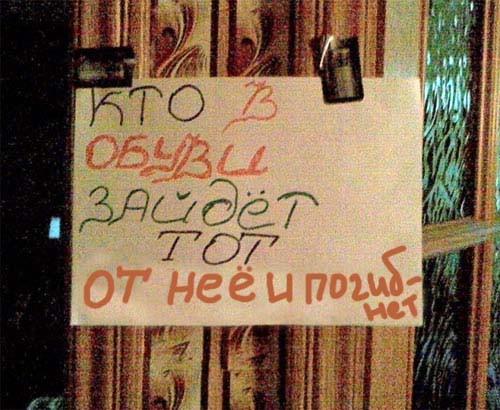 КТО В
ОБУВИ
ЗАЙДЁТ
ТОТ
ОТ НЕЁ И ПОГИБ-
НЕТ